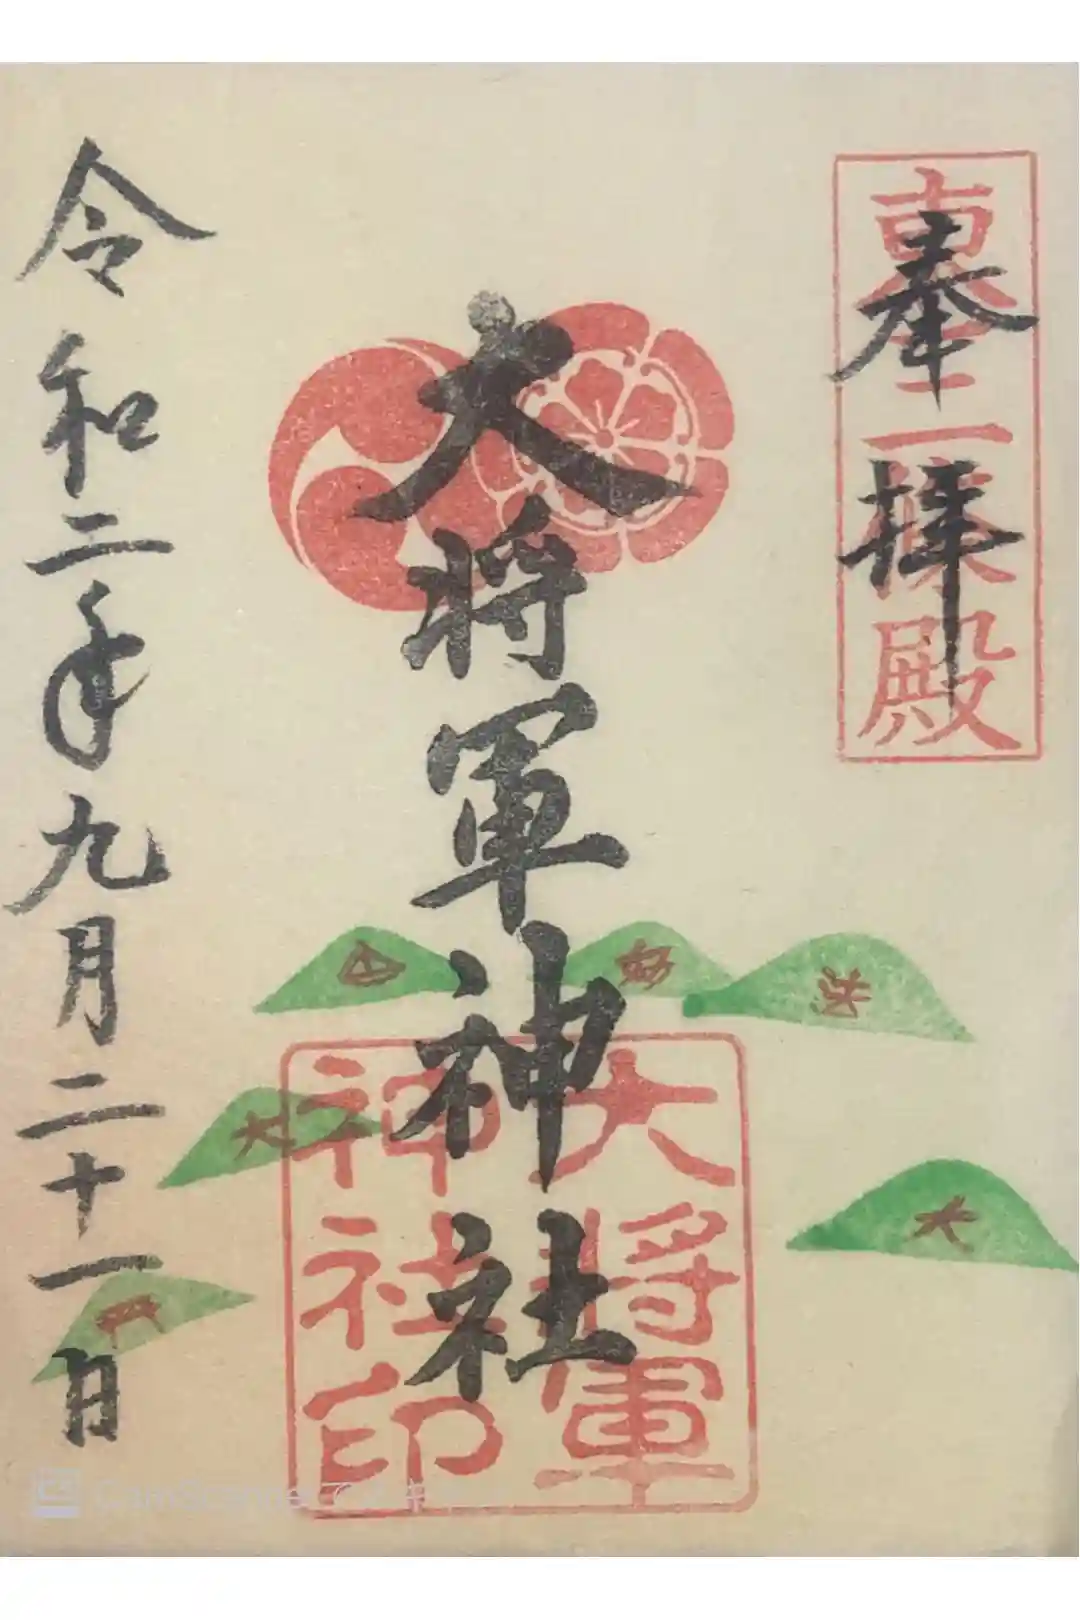 奉拝
東三條殿
大将軍神社
大将軍
神社印
山
妙
法
大
大
令和二年九月二十一日
CamScanner